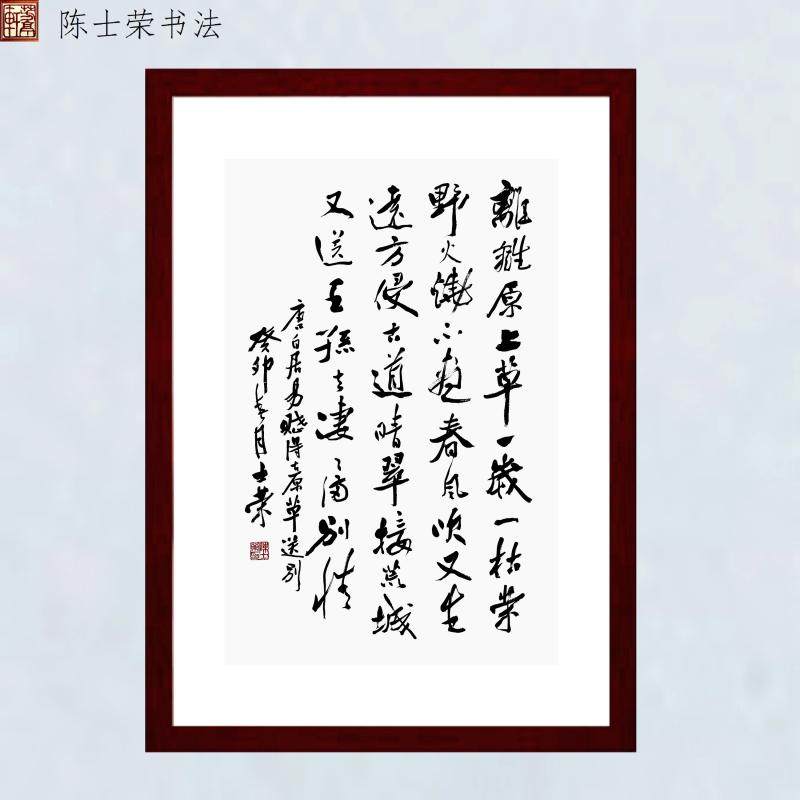 陈士荣书法
離離原上草一歲一枯荣
野火燒不盡春风吹又生
遠方侵古道晴翠接荒城
又送王孫去凄〻滿別情
唐白居易賦得古原草送別
癸卯春月士荣